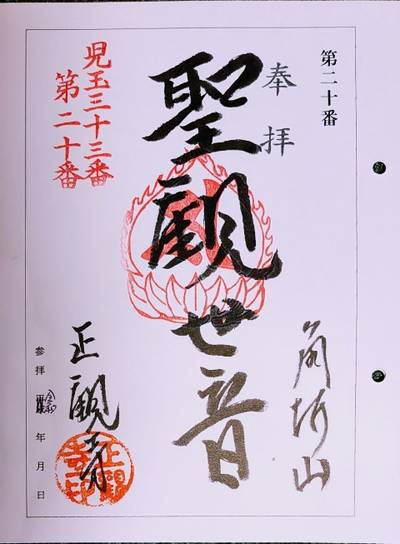 第二十番
奉拝
聖観世音
児玉三十三番
第二十番
正観寺
参拝 年 月 日